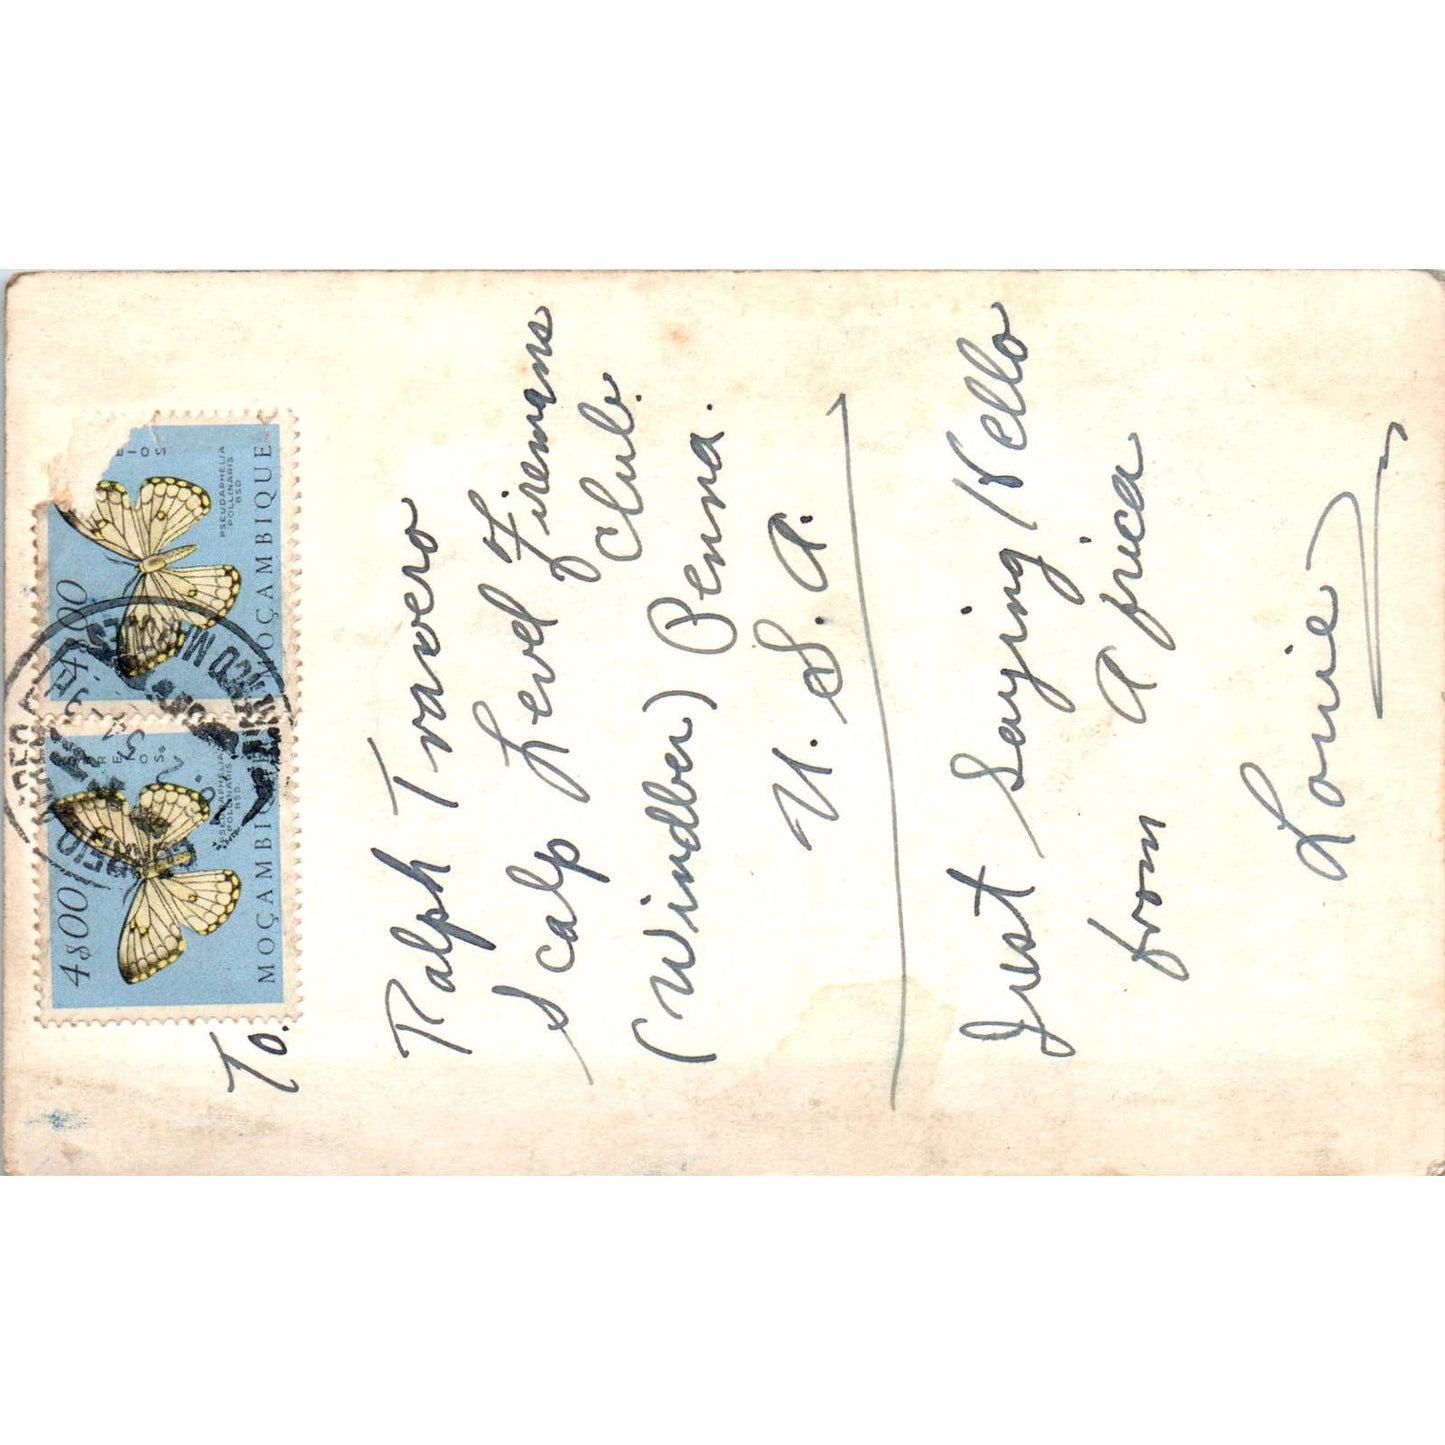 4$00
CORREIOS
PSEUDAPHELIA
POLLINARIS
BSD
MOÇAMBIQUE
4$00
EIOS
PSEUDAPHELIA
POLLINARIS
BSD
MOÇAMBIQUE
To.
Ralph Travero
Scalp Level Firemans
Club.
(Windber) Penna.
U. S. A.
Just Saying Hello
from Africa
Lorrie